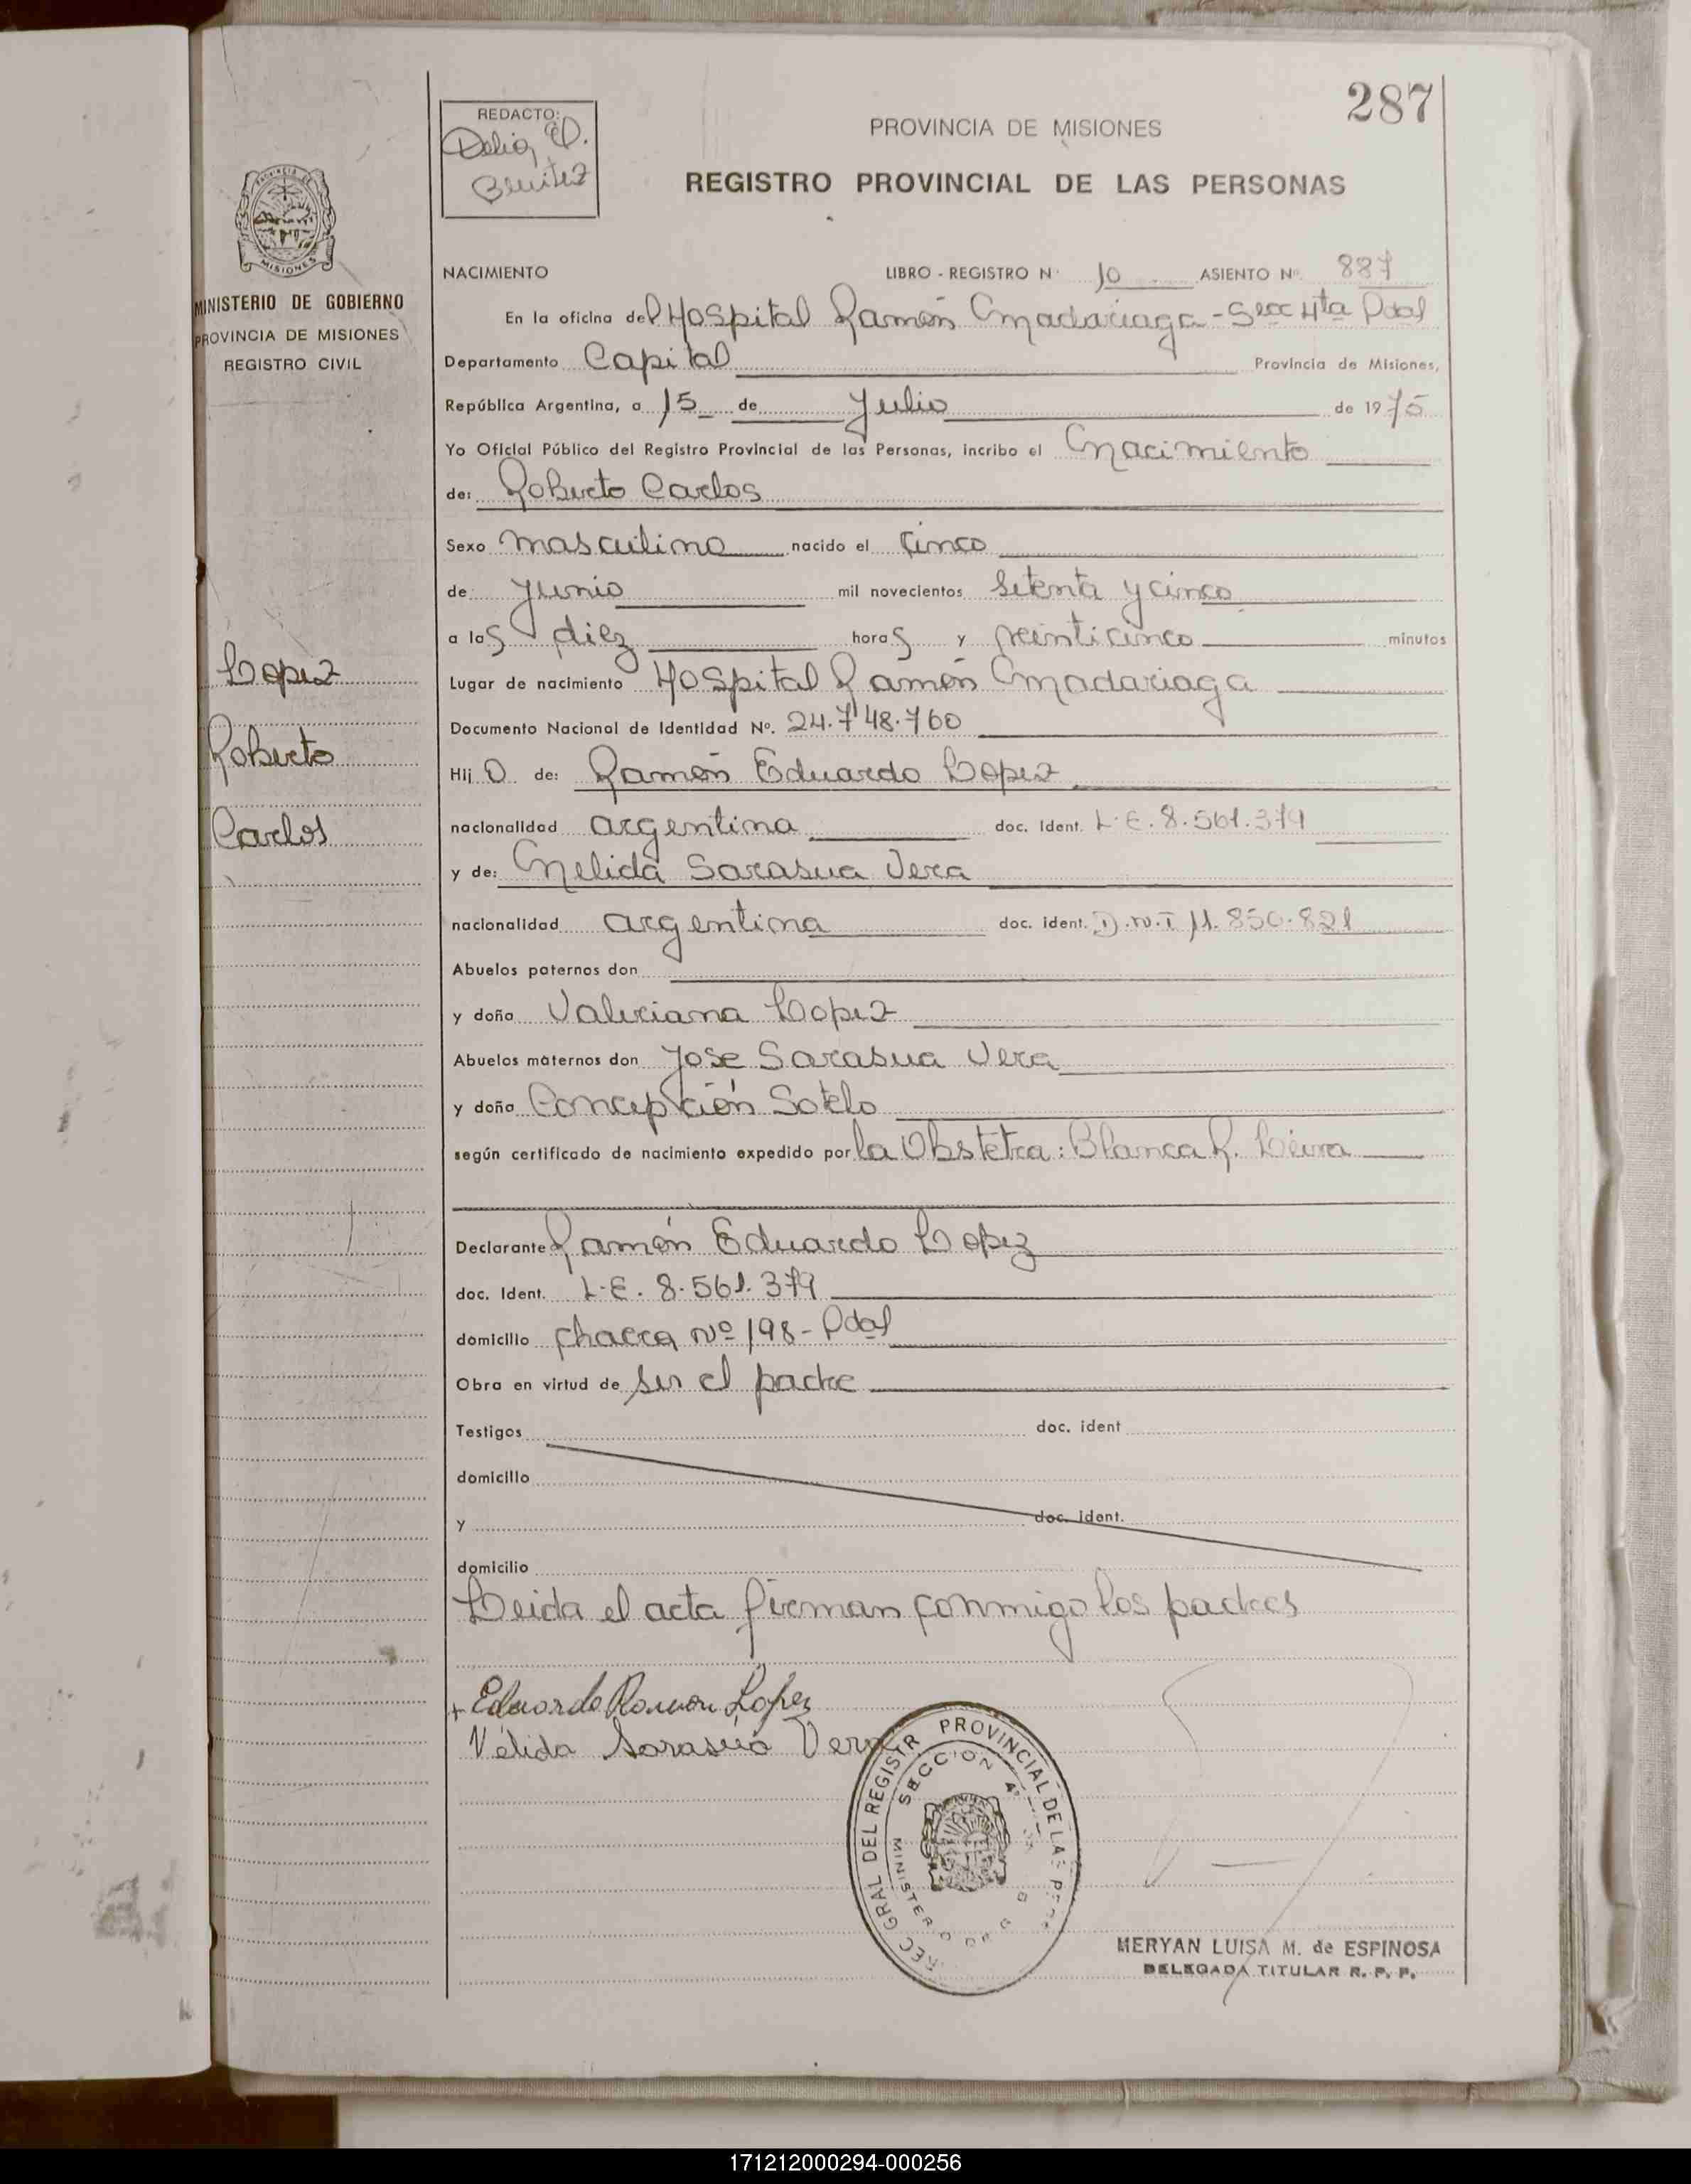 287
REDACTO:
Delia E.
Benitez
PROVINCIA DE MISIONES
REGISTRO PROVINCIAL DE LAS PERSONAS
MISIONES
MINISTERIO DE GOBIERNO
PROVINCIA DE MISIONES
REGISTRO CIVIL
NACIMIENTO LIBRO - REGISTRO Nº 10 ASIENTO Nº 887
En la oficina del Hospital Ramón Madariaga - Secc 4ta Pdas
Departamento Capital Provincia de Misiones,
República Argentina, a 15 de Julio de 1975
Yo Oficial Público del Registro Provincial de las Personas, incribo el Nacimiento
de: Roberto Carlos
Sexo masculino nacido el Cinco
de Junio mil novecientos setenta y cinco
a las diez horas y veinticinco minutos
Lugar de nacimiento Hospital Ramón Madariaga
Documento Nacional de Identidad Nº. 24.748.760
Hij o de: Ramón Eduardo Lopez
nacionalidad argentina doc. Ident. L.E. 8.561.379
y de: Nelida Sarasua Vera
nacionalidad argentina doc. ident. D.N.I 11.850.821
Abuelos paternos don
y doña Valeriana Lopez
Abuelos maternos don Jose Sarasua Vera
y doña Concepción Sotelo
según certificado de nacimiento expedido por la Obstetra: Blanca R.
Declarante Ramón Eduardo Lopez
doc. Ident. L.E. 8.561.379
domicilio chacra Nº 198 - Pdas
Obra en virtud de ser el padre
Testigos doc. ident
domicilio
y doc. ident.
domicilio
Leida el acta firman conmigo los padres
Lopez
Roberto
Carlos
+ Eduardo Ramon Lopez
Nélida Sarasúa Vera
GRAL DEL REGISTR PROVINCIAL DE LAS
SECCION 4ª
MINISTERIO DE G
MERYAN LUISA M. de ESPINOSA
DELEGADA TITULAR R. P. P.
171212000294-000256